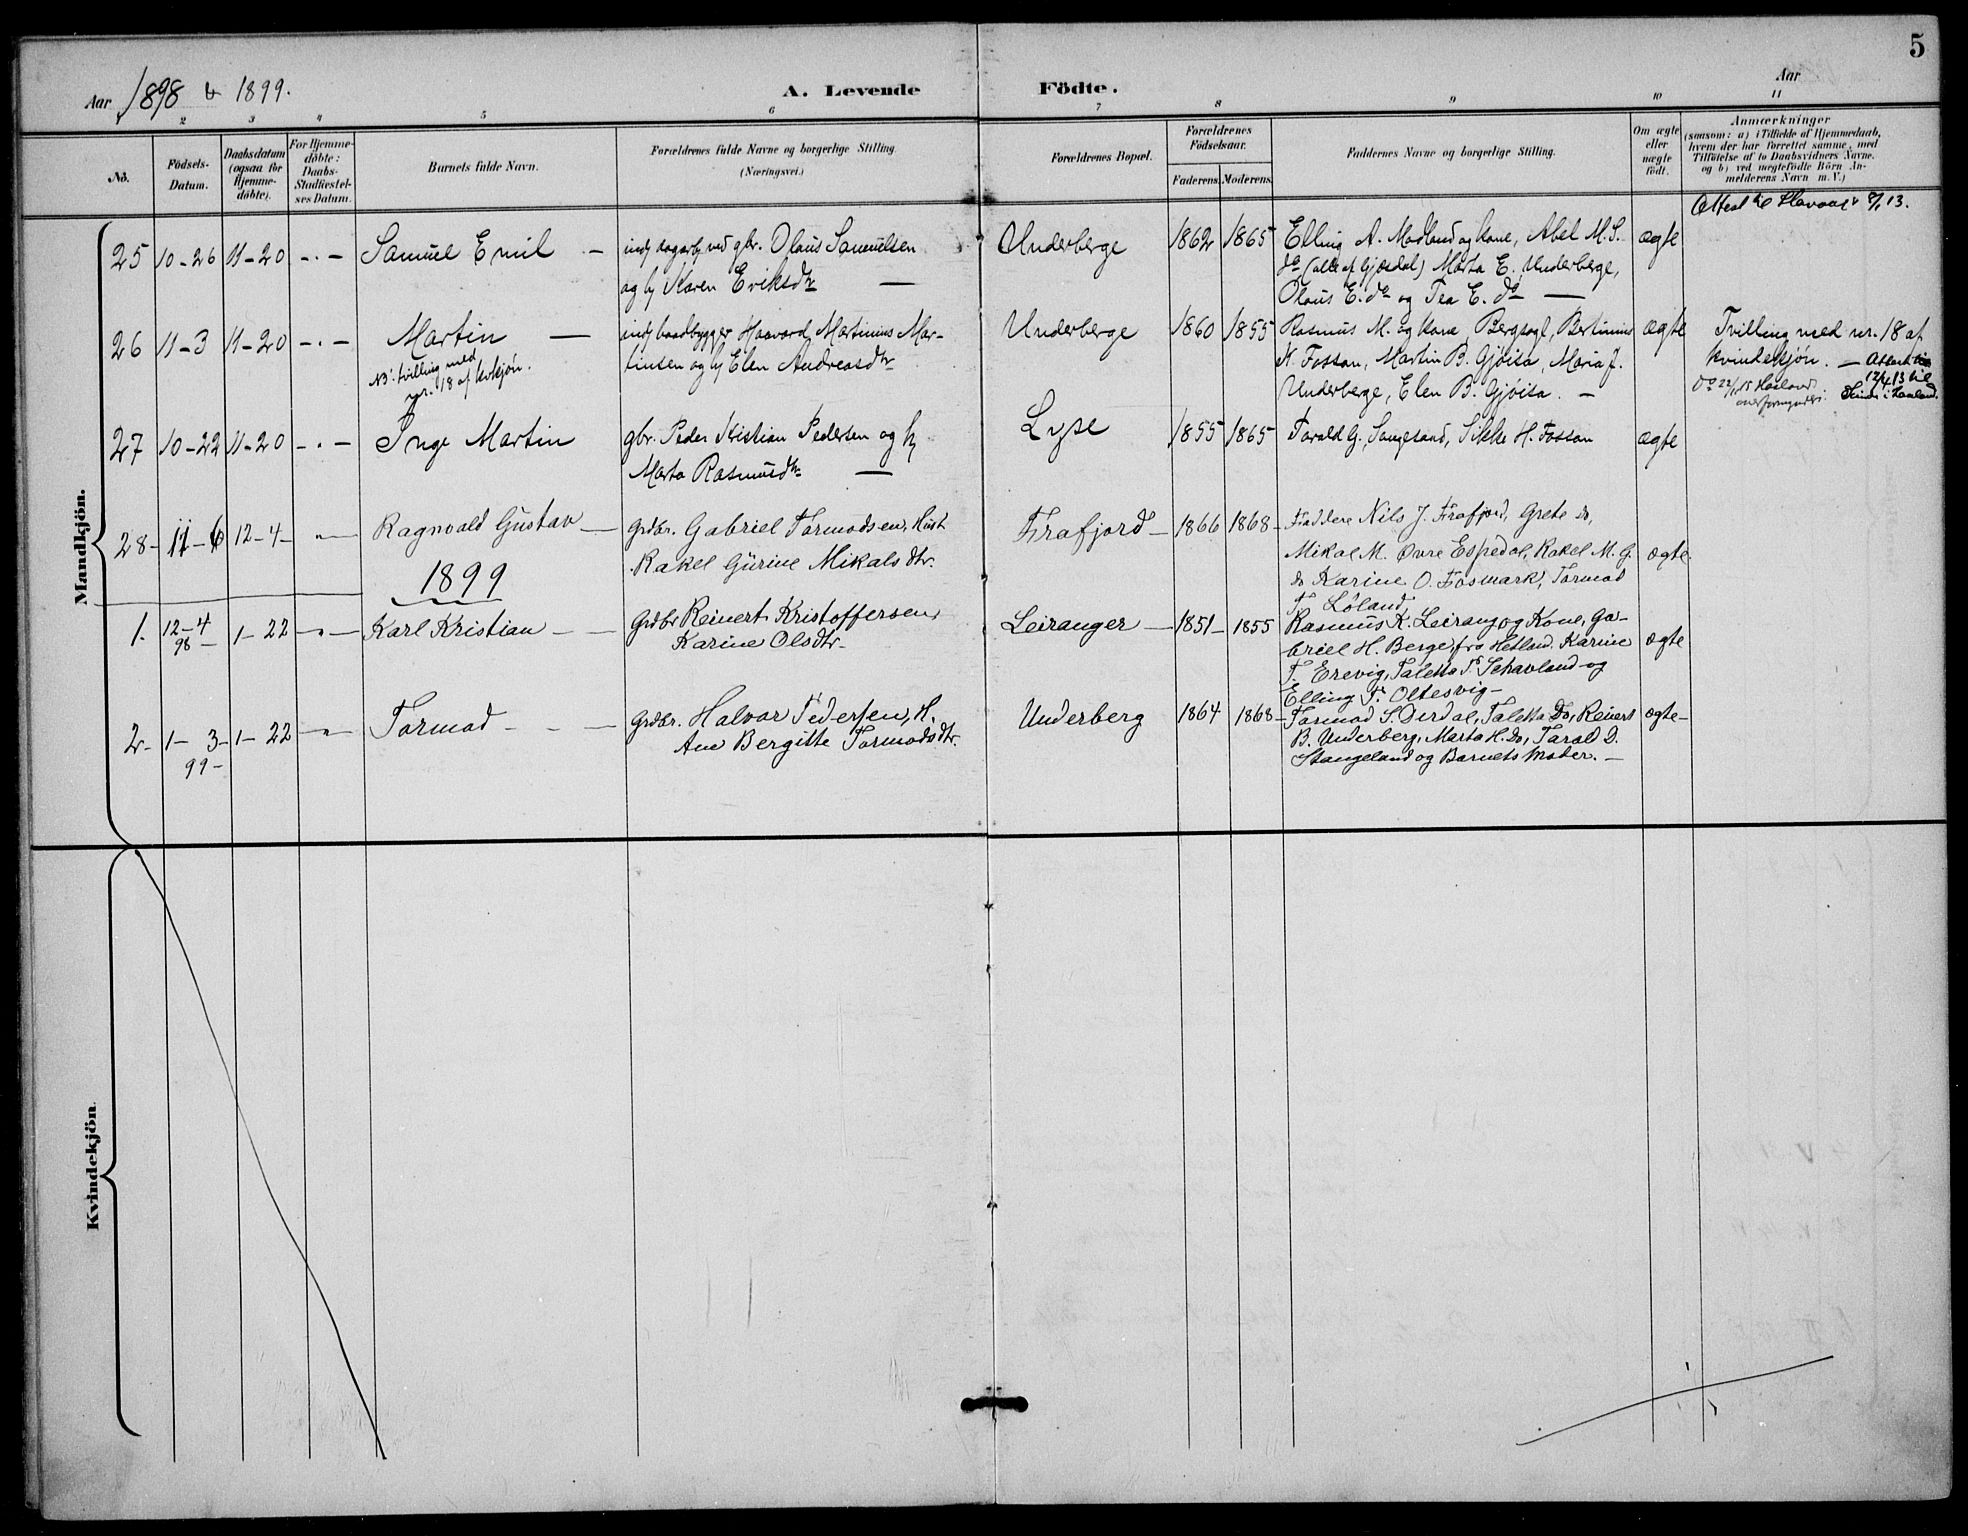 5
Aar 1898 & 1899.
A. Levende Födte.
Aar
2 3 4 5 6 7 8 9 10 11
No.
Födsels-
Datum.
Daabsdatum
(ogsaa for
Hjemme-
døbte).
For Hjemme-
døbte:
Daabs-
Stadfæstel-
ses Datum.
Barnets fulde Navn.
Forældrenes fulde Navne og borgerlige Stilling
(Næringsvei.)
Forældrenes Bopæl.
Forældrenes
Fødselsaar.
Faderens. Moderens.
Faddernes Navne og borgerlige Stilling.
Om ægte
eller
uægte
født.
Anmærkninger
(saasom: a) i Tilfælde af Hjemmedaab,
hvem der har forrettet samme, med
Tilføielse af to Daabsvidners Navne.
og b) ved uægtefødte Börn An-
melderens Navn m. V.)
Mandkjön.
Attest 8/1 13.
25 10-26 11-20 -.- Samuel Emil -
ved gbr. Olaus Samuelsen
og Karen Eriksdtr —
Underberge 1862 1865
Elling A. Madland og Kone, Abel M. S.
do (alle af Gjesdal) Marta E. Underberge,
Olaus E. do og Tea E. do —
ægte
26 11-3 11-20 -.- Martin —
NB. tvilling med
nr. 18 af kvkjøn.
baadbygger Haavard Martinius Mar-
tinsen og Elen Andreasdtr
Underberge 1860 1855
Rasmus M. og Kone Bergsagl, Bertinius
H. Fossan, Martin B. Gjøisa, Maria J.
Underberge, Elen B. Gjøisa. -
ægte
Tvilling med nr. 18 af
kvindekjøn. -
12/4 13 til
do 22/1 15
27 10-22 11-20 -.- Inge Martin
gbr. Peder Kristian Pedersen og
Marta Rasmusdtr —
Lyse 1855 1865 Tarald G. Sangesand, Sikke H. Fossan ægte
28- 11-6 12-4- -"- Ragnvald Gustav -
Grdbr. Gabriel Tormodsen, Hust
Rakel Gurine Mikalsdtr.
Frafjord - 1866 1868-
Faddere Nils J. Frafjord, Grete Do,
Mikal M. Øvre Espedal, Rakel M. G.
Do Karine O. Fosmark, Tormod
T. Løland
ægte.
1899
1. 12-4
98-
1-22 -"- Karl Kristian - -
Grdbr Reinert Kristoffersen,
Karine Olsdtr-
Leiranger - 1851- 1855
Rasmus K. Leirang og Kone, Ga-
briel H. Berge, fra Hetland, Karine
T. Erevig, Taletta Schavland og
Elling Oltesvig -
ægte
2- 1-3-
99-
1-22 -"- Tormod - - -
Grdbr. Halvor Pedersen, H.
Ane Bergitte Tormodsdtr.
Underberg 1864 1868-
Tormod S. Dirdal, Taletta Do, Reinert
B. Underberg, Marta H. Do, Tarald D.
Stangeland og Barnets Moder. -
ægte-
Kvindekjön.